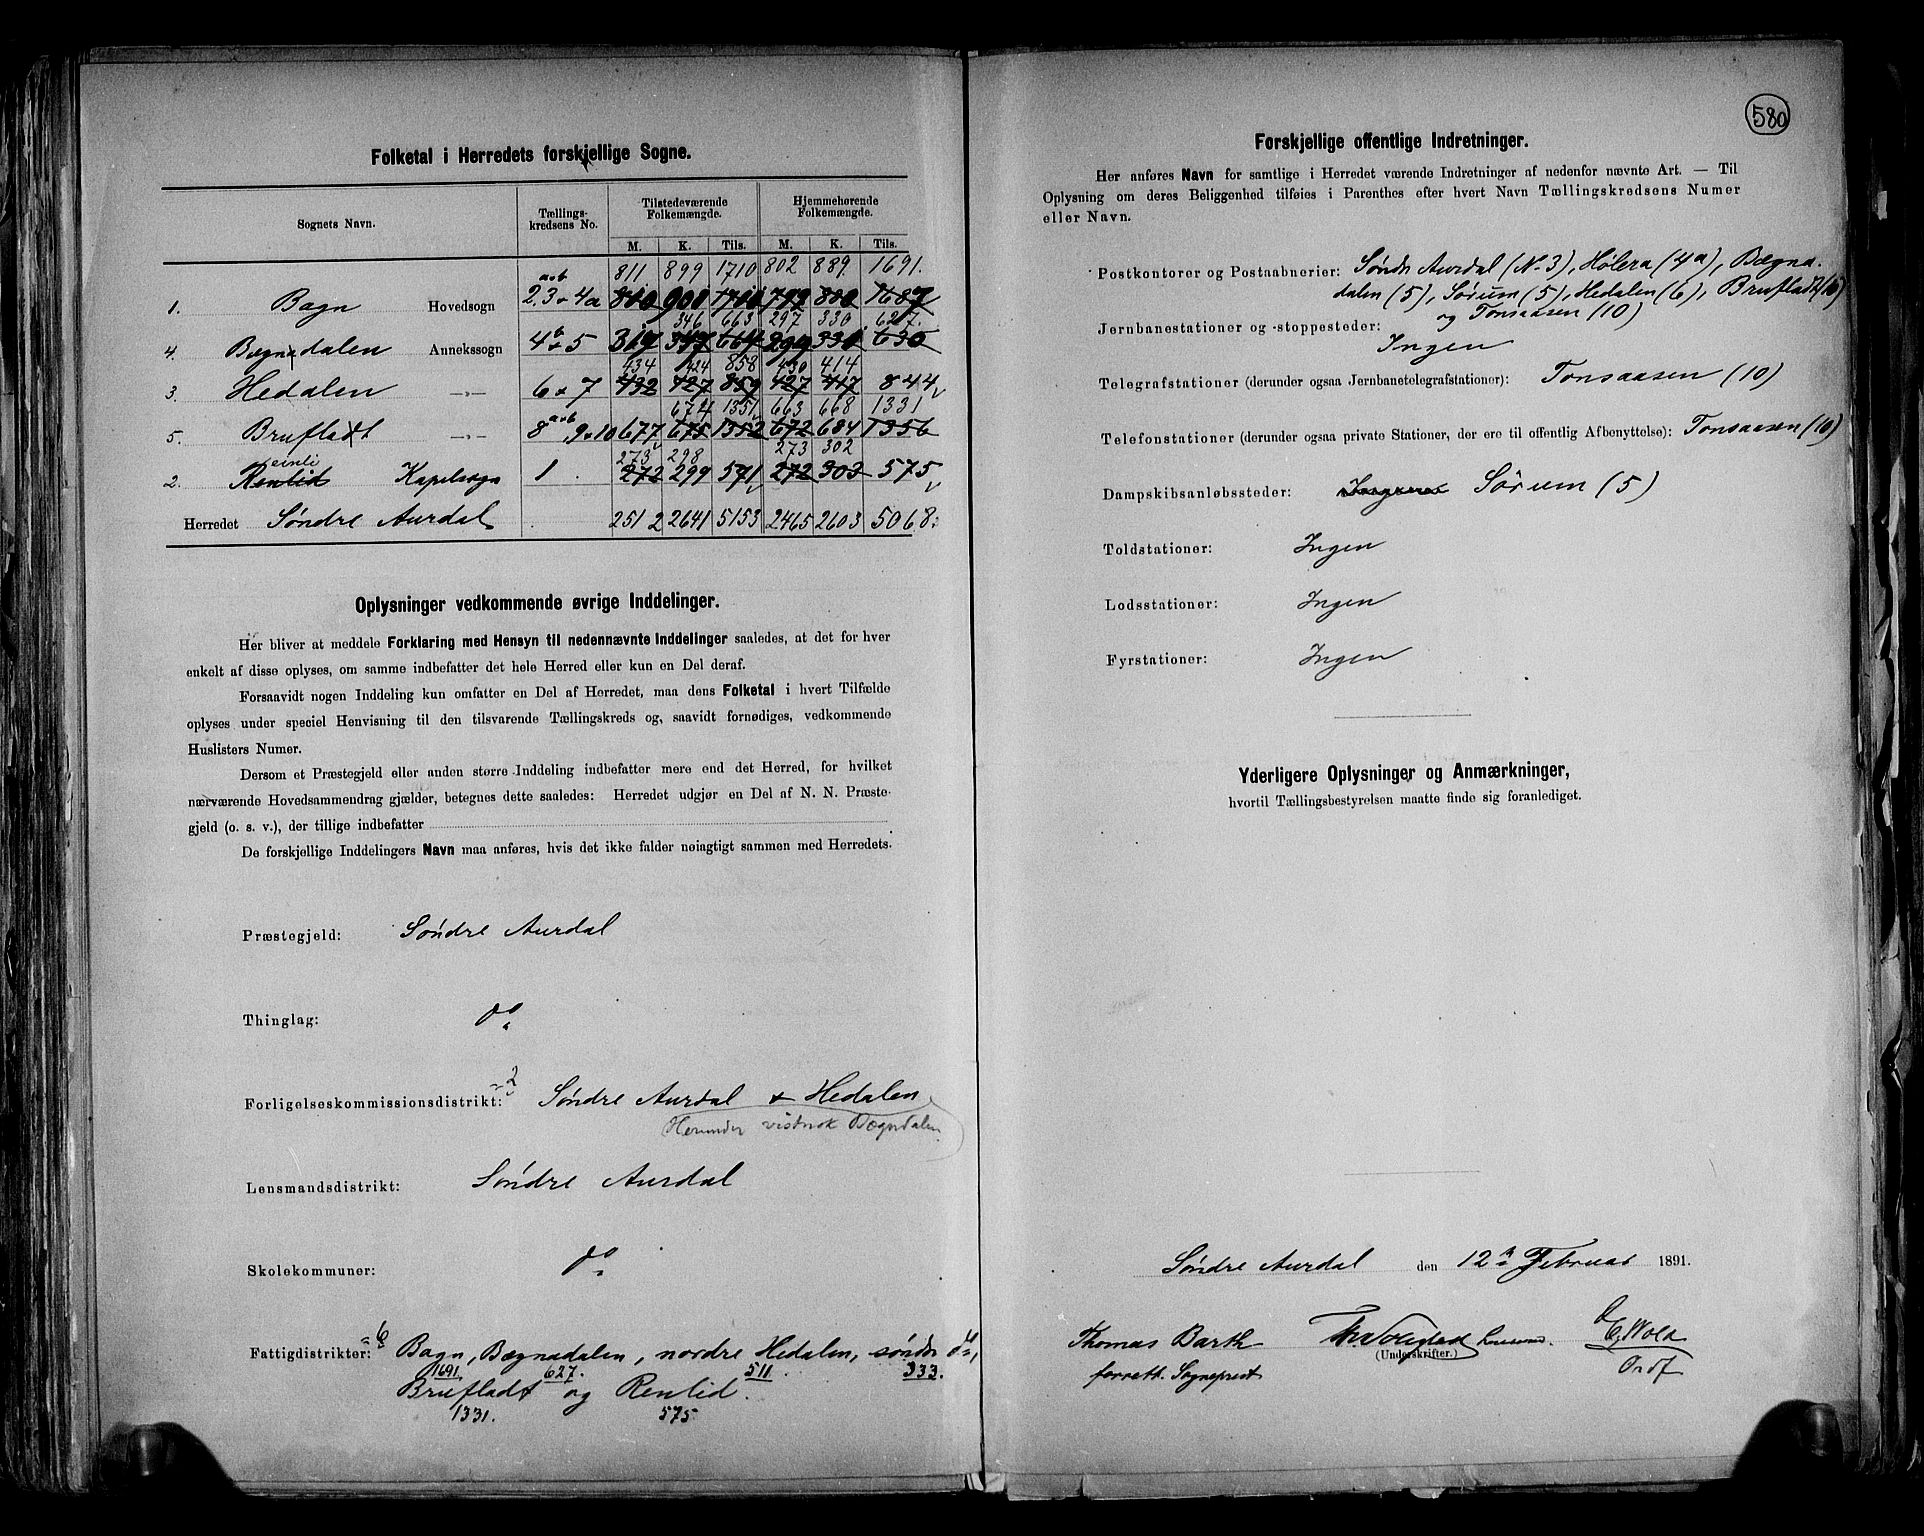 Folketal i Herredets forskjellige Sogne.
Sognets Navn. Tællings-kredsens No. Tilstedeværende Folkemængde. Hjemmehørende Folkemængde.
M. K. Tils. M. K. Tils.
811 899 1710 802 889 1691.
1. Bagn Hovedsogn a+b 2.3 + 4a
346 663 297 330 627.
4. Bægnadalen Annekssogn 4b + 5 317
434 424 858 430 414
3. Hedalen -„- 6 + 7 432 427 859 427 417 844
674 1351 663 668 1331
5. Brufladt -„- 8 a+b 9 + 10 677 675 1352 672 684 1356
einli 273 298 273 302
2. Renlid Kapelsogn 1 . 272 299 571 272 303 575
Herredet Søndre Aurdal 2512 2641 5153 2465 2603 5068.
Oplysninger vedkommende øvrige Inddelinger.
Her bliver at meddele Forklaring med Hensyn til nedennævnte Inddelinger saaledes, at det for hver
enkelt af disse oplyses, om samme indbefatter det hele Herred eller kun en Del deraf.
Forsaavidt nogen Inddeling kun omfatter en Del af Herredet, maa dens Folketal i hvert Tilfælde
oplyses under speciel Henvisning til den tilsvarende Tællingskreds og, saavidt fornødiges, vedkommende
Huslisters Numer.
Dersom et Præstegjeld eller anden større Inddeling indbefatter mere end det Herred, for hvilket
nærværende Hovedsammendrag gjælder, betegnes dette saaledes: Herredet udgjør en Del af N. N. Præste-
gjeld (o. s. v.), der tillige indbefatter
De forskjellige Inddelingers Navn maa anføres, hvis det ikke falder nøiagtigt sammen med Herredets.
Præstegjeld: Søndre Aurdal
Thinglag: do
Forligelseskommissionsdistrikt: 2 Søndre Aurdal + Hedalen
Herunder vistnok Bægndalen
Lensmandsdistrikt: Søndre Aurdal
Skolekommuner: do
Fattigdistrikter: 6 Bagn, Bægnadalen, nordre Hedalen, søndre do,
1691 627. 511 333.
Brufladt og Renlid.
1331. 575
580
Forskjellige offentlige Indretninger.
Her anføres Navn for samtlige i Herredet værende Indretninger af nedenfor nævnte Art. — Til
Oplysning om deres Beliggenhed tilføies i Parenthes efter hvert Navn Tællingskredsens Numer
eller Navn.
Postkontorer og Postaabnerier: Søndr Aurdal (N. 3), Hølera (4a), Bægna-
dalen (5), Sørum (5), Hedalen (6), Brufladt (10)
og Tonsaasen (10)
Jernbanestationer og -stoppesteder: Ingen
Telegrafstationer (derunder ogsaa Jernbanetelegrafstationer): Tonsaasen (10)
Telefonstationer (derunder ogsaa private Stationer, der ere til offentlig Afbenyttelse): Tonsaasen (10)
Dampskibsanløbssteder: Sørum (5)
Toldstationer: Ingen
Lodsstationer: Ingen
Fyrstationer: Ingen
Yderligere Oplysninger og Anmærkninger,
hvortil Tællingsbestyrelsen maatte finde sig foranlediget.
Søndre Aurdal den 12 Februar 1891.
Thomas Barth
forrett. Sogneprest
(Underskrifter.)
E. Wold
Ordf